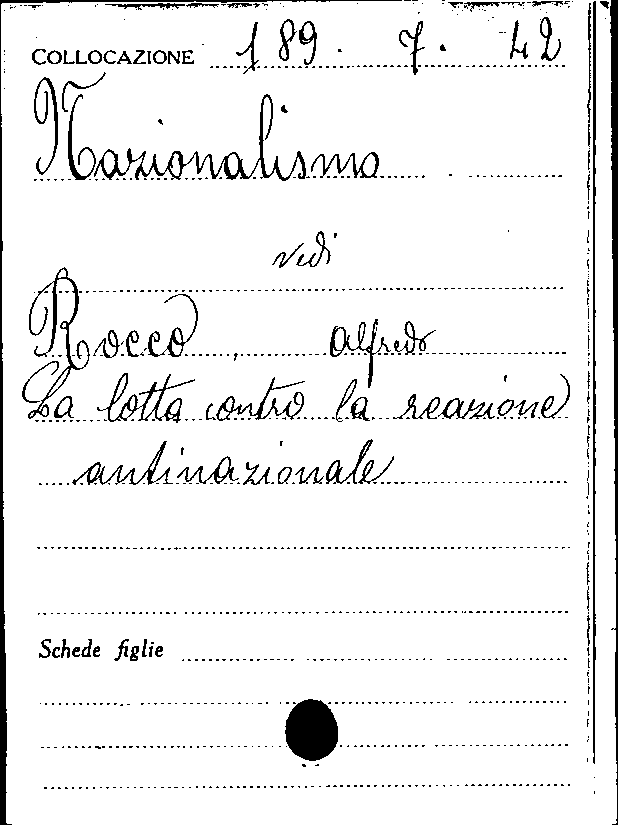 COLLOCAZIONE 189. 7. 42
Nazionalismo
vedi
Rocco, Alfredo
La lotta contro la reazione
antinazionale
Schede figlie